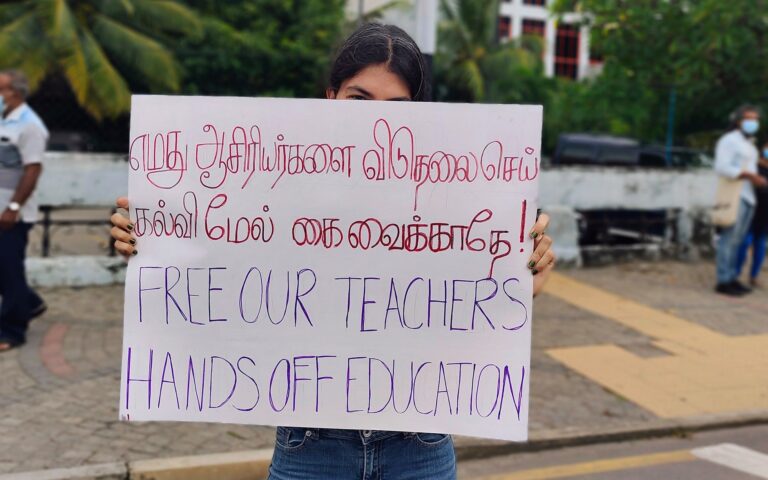 எமது ஆசிரியர்களை விடுதலை செய்
கல்வி மேல் கை வைக்காதே!
FREE OUR TEACHERS
HANDS OFF EDUCATION